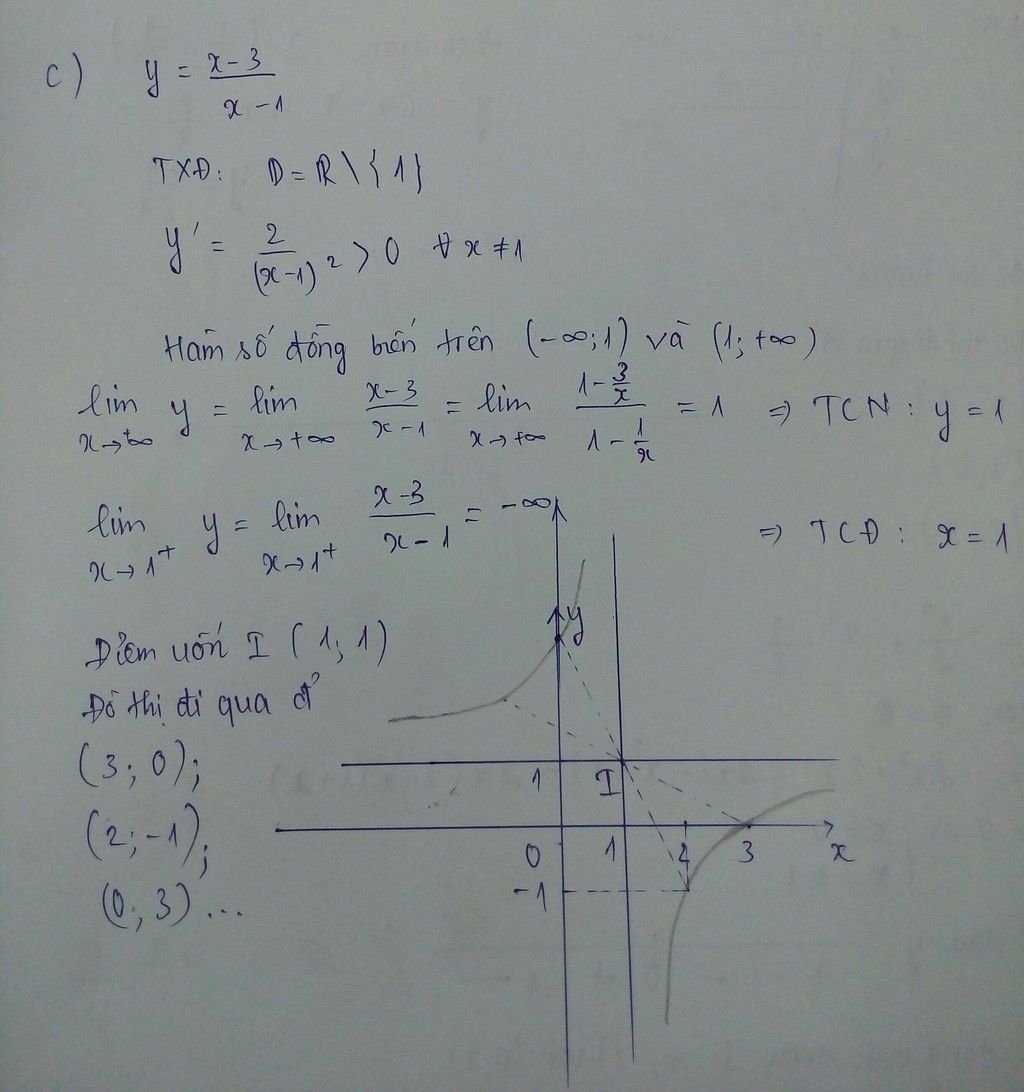 c) y = (x-3)/(x-1)
TXĐ: D = R \ {1}
y' = 2/(x-1)² > 0 ∀ x ≠ 1
Hàm số đồng biến trên (-∞; 1) và (1; +∞)
lim x→+∞ y = lim x→+∞ (x-3)/(x-1) = lim x→+∞ (1 - 3/x)/(1 - 1/x) = 1 => TCN : y = 1
lim x→1⁺ y = lim x→1⁺ (x-3)/(x-1) = -∞ => TCĐ : x = 1
Điểm uốn I (1; 1)
Đồ thị đi qua đ'
(3; 0);
(2; -1);
(0; 3) ...
y
1 I
0 1 2 3 x
-1